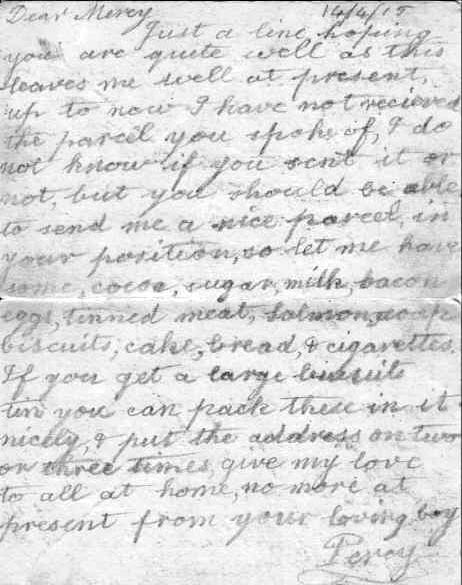 Dear Mercy 14/4/15
Just a line, hoping
you are quite well as this
leaves me well at present,
up to now I have not recieved
the parcel you spoke of, I do
not know if you sent it or
not, but you should be able
to send me a nice parcel, in
your position, so let me have
some, cocoa, sugar, milk, bacon
eggs, tinned meat, salmon, soap
biscuits, cake, bread, & cigarettes.
If you get a large biscuits
tin you can pack these in it
nicely, & put the address on two
or three times, give my love
to all at home, no more at
present from your loving boy
Percy